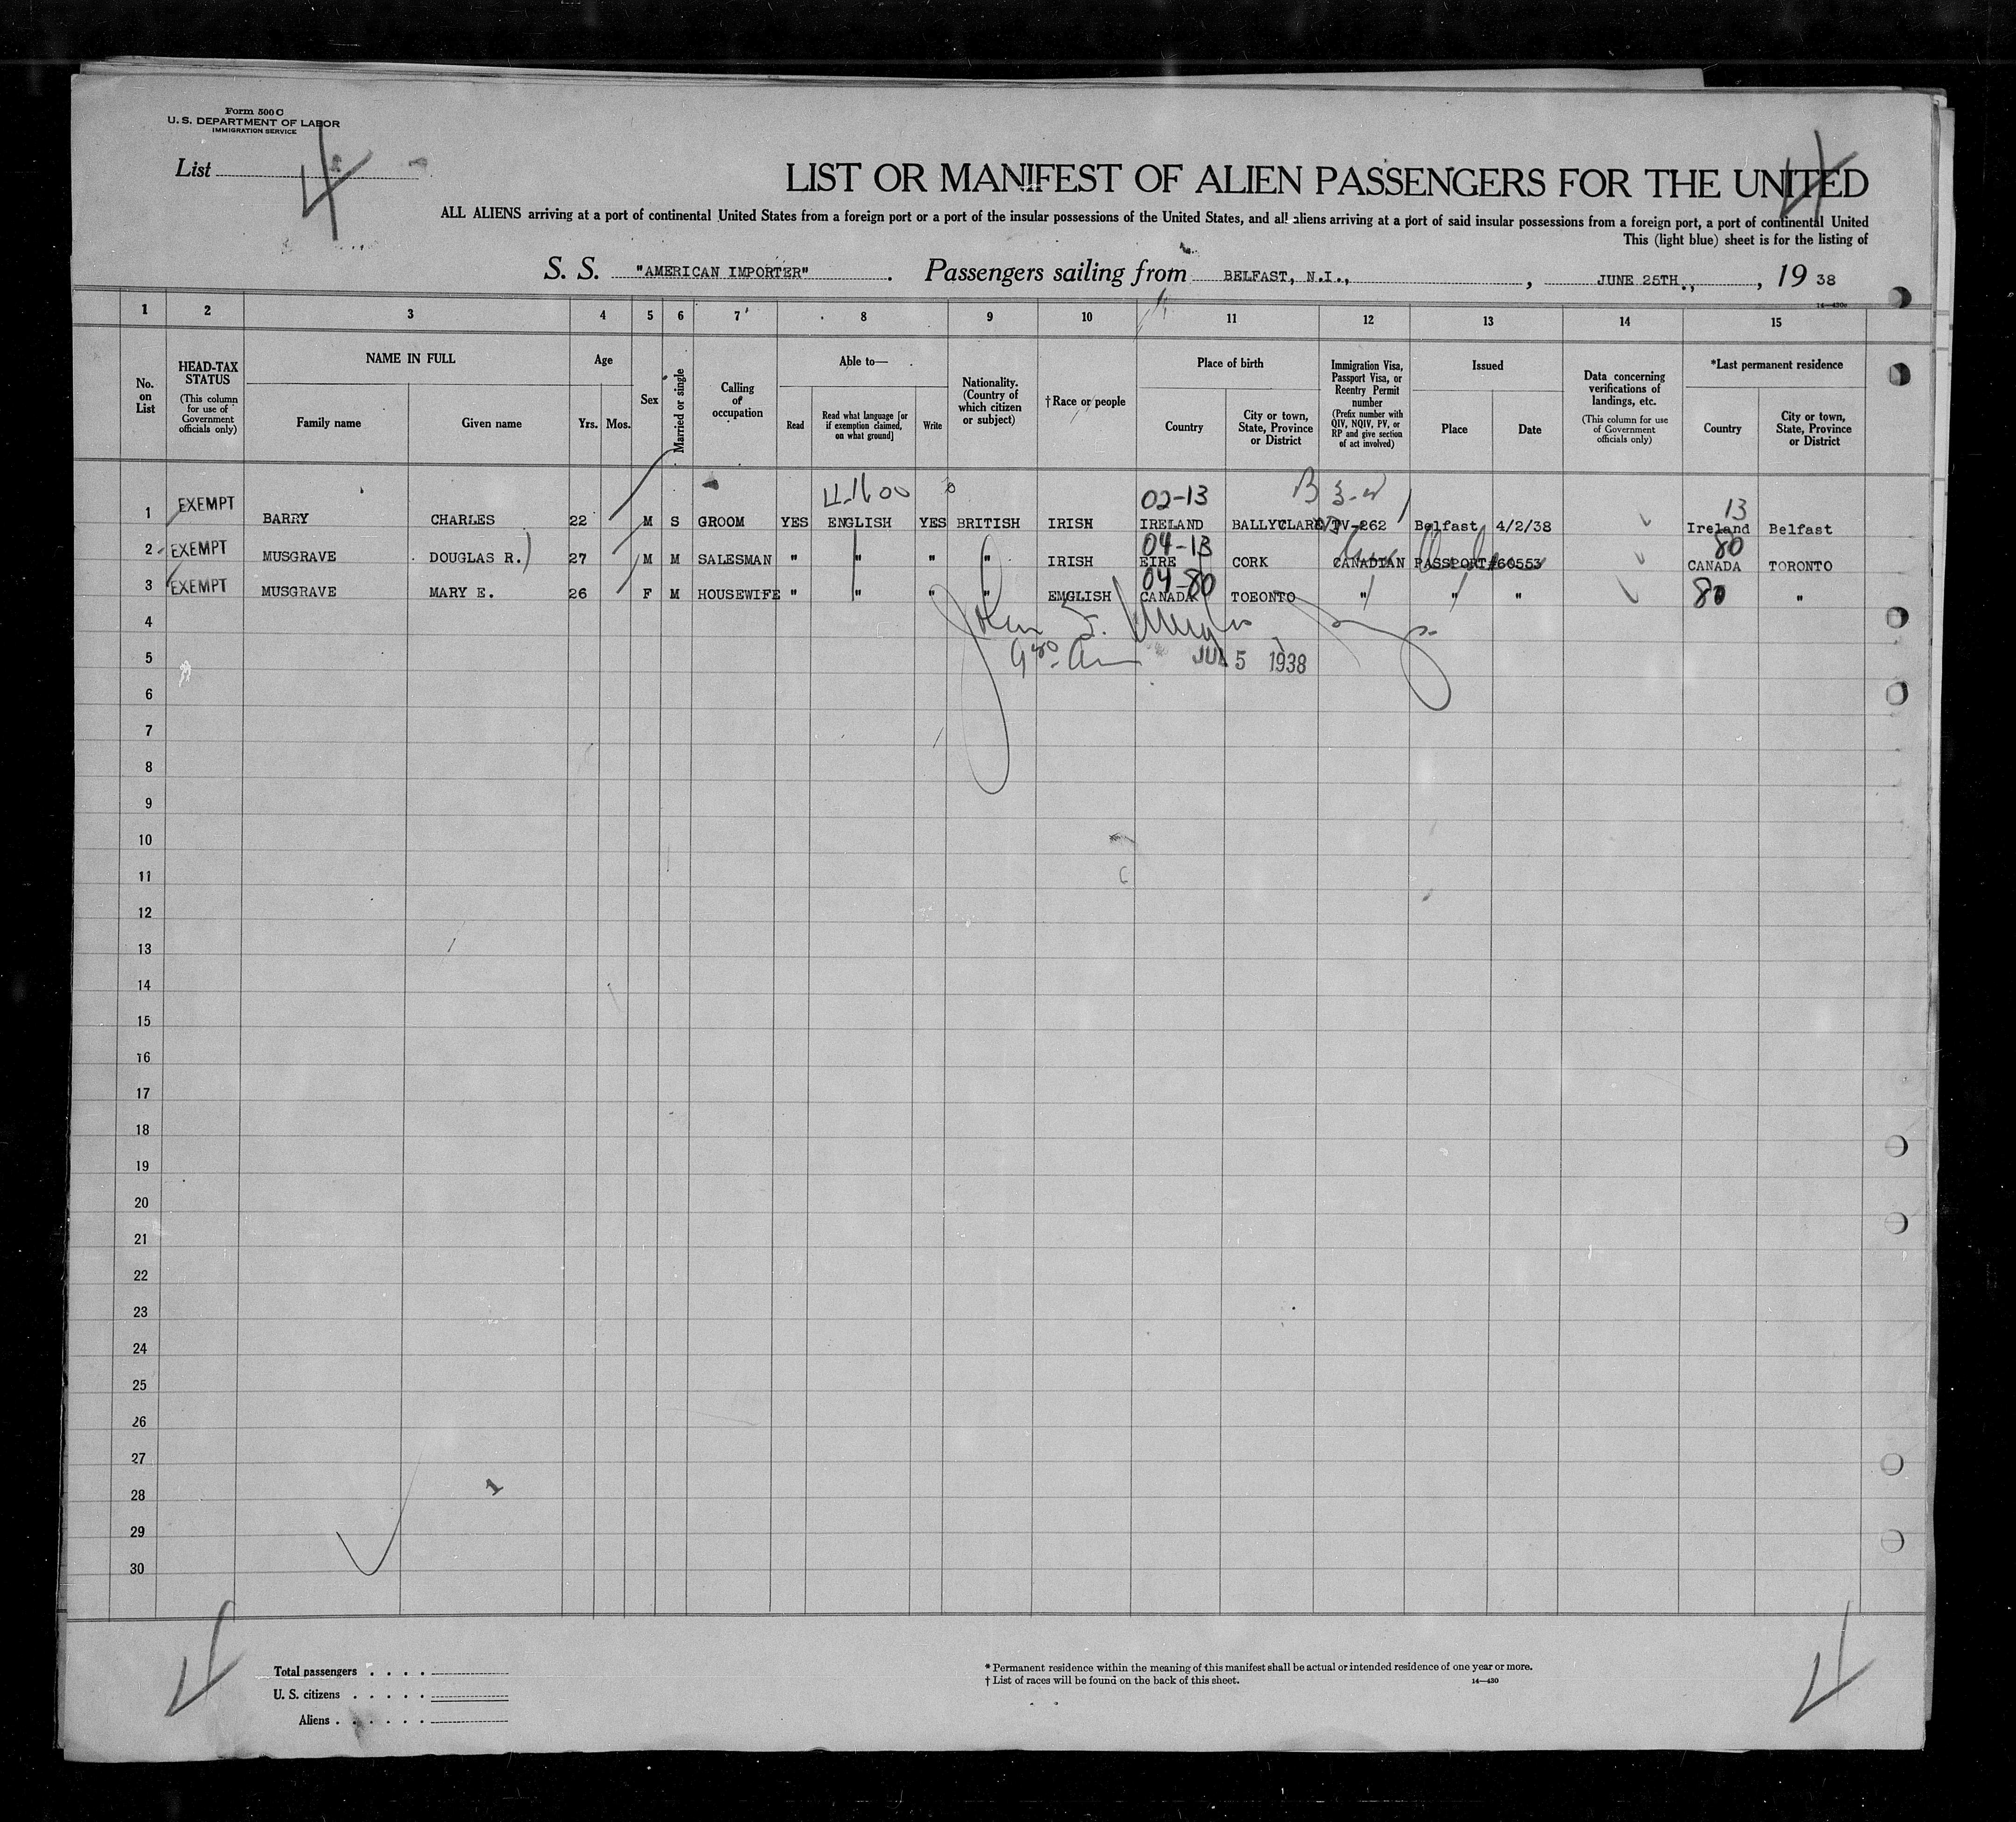 Form 500 C
U. S. DEPARTMENT OF LABOR
IMMIGRATION SERVICE
List 4
4
LIST OR MANIFEST OF ALIEN PASSENGERS FOR THE UNITED
ALL ALIENS arriving at a port of continental United States from a foreign port or a port of the insular possessions of the United States, and all aliens arriving at a port of said insular possessions from a foreign port, a port of continental United
This (light blue) sheet is for the listing of
S. S. "AMERICAN IMPORTER" . Passengers sailing from BELFAST, N.I., , JUNE 25TH., , 19 38
14—430c
1 2 3 4 5 6 7 8 9 10 11 12 13 14 15
No. on List
HEAD-TAX STATUS
(This column for use of Government officials only)
NAME IN FULL
Family name
Given name
Age
Yrs.
Mos.
Sex
Married or single
Calling of occupation
Able to—
Read
Read what language [or if exemption claimed, on what ground]
Write
Nationality. (Country of which citizen or subject)
†Race or people
Place of birth
Country
City or town, State, Province or District
Immigration Visa, Passport Visa, or Reentry Permit number
(Prefix number with QIV, NQIV, PV, or RP and give section of act involved)
Issued
Place
Date
Data concerning verifications of landings, etc.
(This column for use of Government officials only)
*Last permanent residence
Country
City or town, State, Province or District
02-13 B 3-
13
1 EXEMPT BARRY CHARLES 22 M S GROOM YES ENGLISH YES BRITISH IRISH IRELAND BALLYCLARE PV-262 Belfast 4/2/38 Ireland Belfast
04-13 80
2 EXEMPT MUSGRAVE DOUGLAS R. 27 M M SALESMAN " " " " IRISH EIRE CORK CANADIAN PASSPORT#60553 CANADA TORONTO
04-80
3 EXEMPT MUSGRAVE MARY E. 26 F M HOUSEWIFE " " " " ENGLISH CANADA TOEONTO " " " 80 "
4
John
5
JUL 5 1938
6
7
8
9
10
11
12
13
14
15
16
17
18
19
20
21
22
23
24
25
26
27
28
1
29
30
Total passengers . . . .
U. S. citizens . . . . .
Aliens . . . . . .
* Permanent residence within the meaning of this manifest shall be actual or intended residence of one year or more.
† List of races will be found on the back of this sheet.
14—430